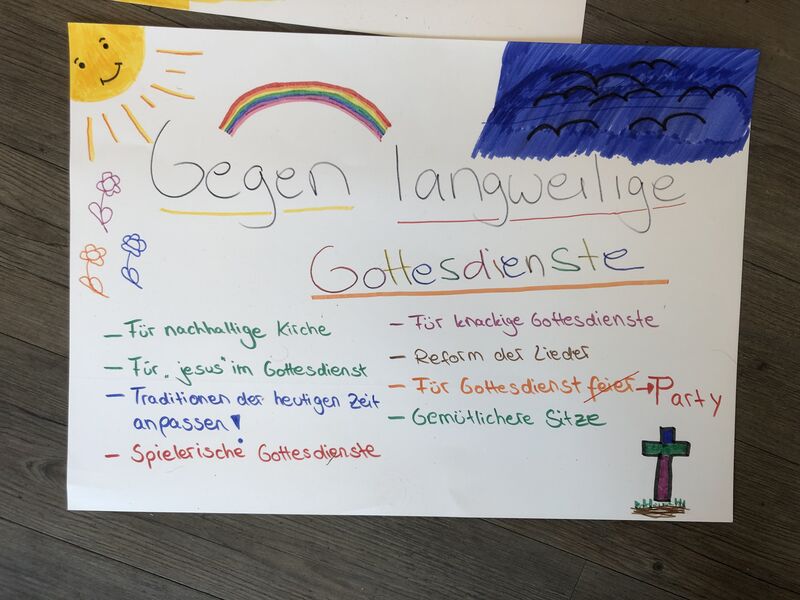 Gegen langweilige
Gottesdienste
- Für nachhaltige Kirche
- Für „jesus" im Gottesdienst
- Traditionen der heutigen Zeit
anpassen!
- Spielerische Gottesdienste
- Für knackige Gottesdienste
- Reform der Lieder
- Für Gottesdienst feier → Party
- Gemütlichere Sitze